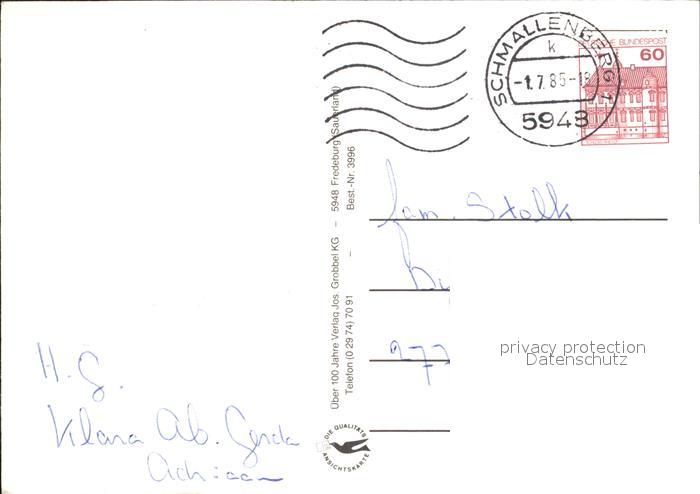 DEUTSCHE BUNDESPOST
60
SCHMALLENBERG 1
k
-1.7.85-18
5948
Über 100 Jahre Verlag Jos. Grobbel KG – 5948 Fredeburg (Sauerland)
Telefon (0 29 74) 70 91 – Best.-Nr. 3996
fam. Stolk
977
privacy protection
Datenschutz
H. G.
Klara Ab. Gerda
Adriaan
DIE QUALITÄTS
ANSICHTSKARTE